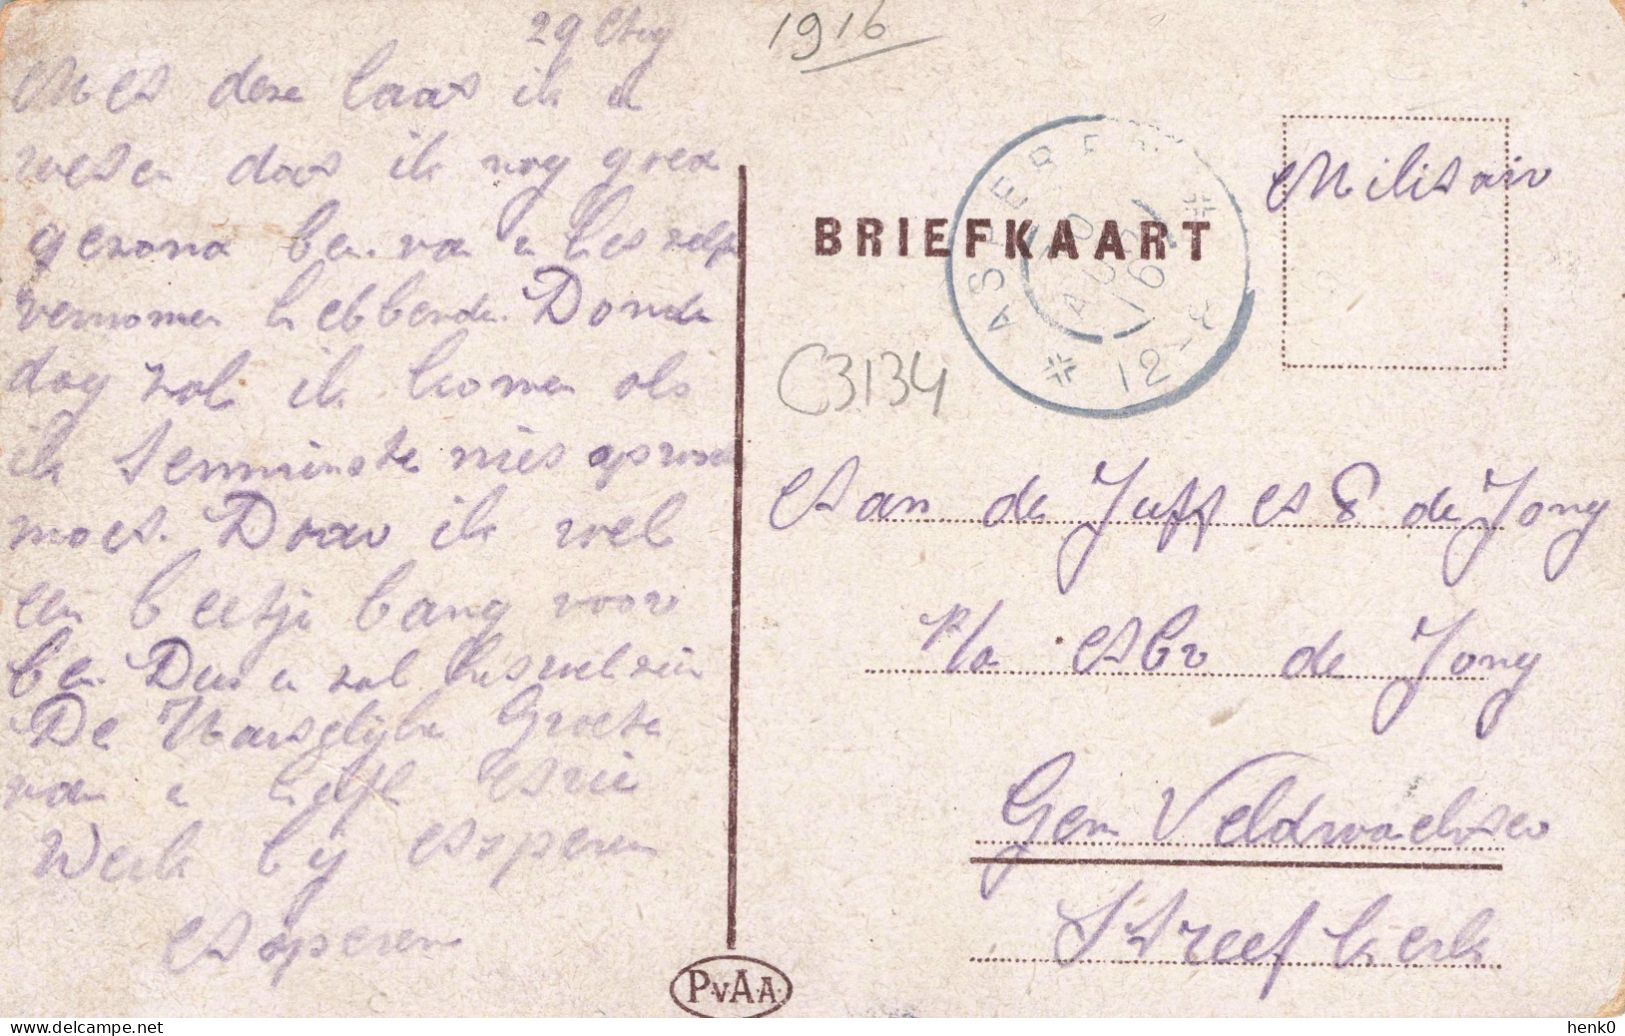 29 Aug
Met deze laat ik u
weten dat ik nog goed
gezond ben. van u het zelfde
vernomen hebbende. Donder
dag zal ik komen als
ik tenminste niet oprukken
moet. Daar ik wel
een beetje bang voor
ben. Dus u zal het wel zien
De Hartelijke Groete
van u
Werk bij Asperen
Asperen
1916
BRIEFKAART
ASPEREN
30 AUG 16
12-
Militair
C3134
Aan de Juff A S de Jong
p/a A Br de Jong
Gem Veldwachter
Streefkerk
P.v.A.A.
delcampe.net
henk0